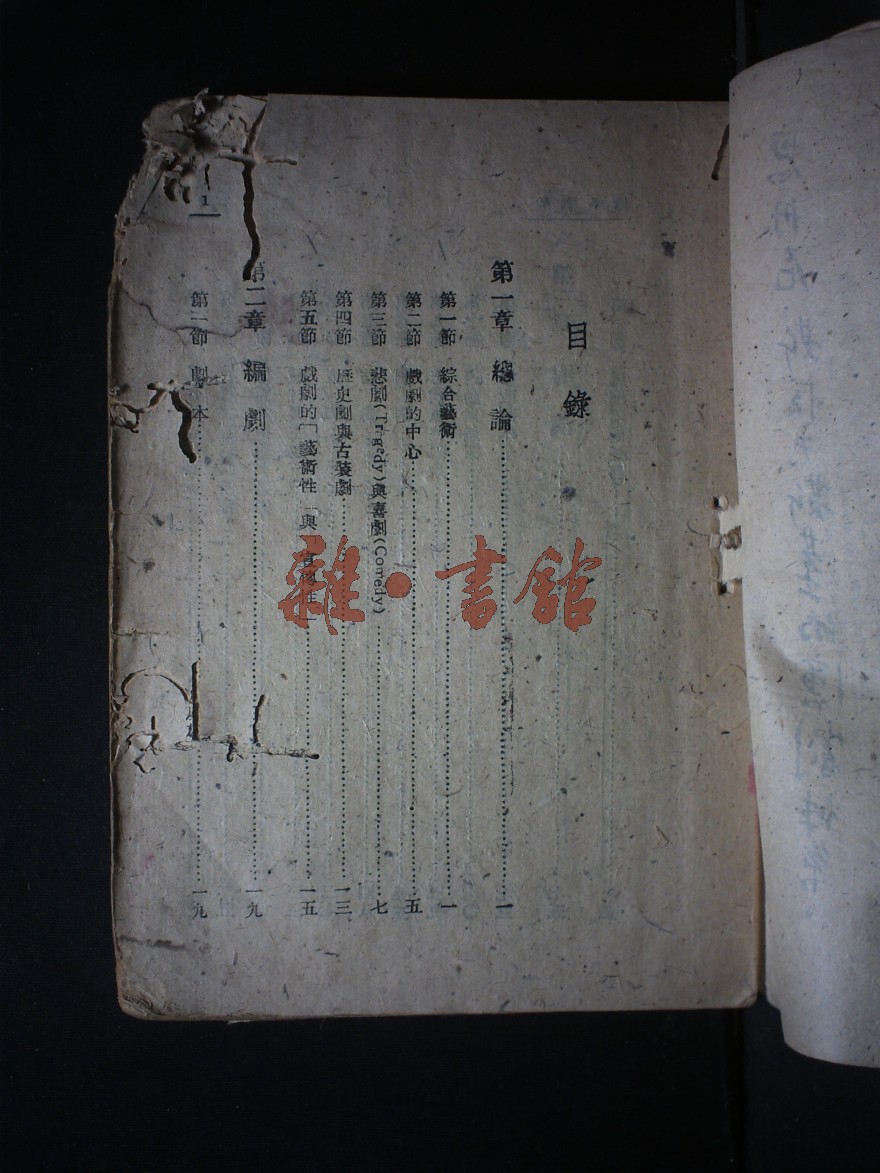 目錄
第一章 總論……一
第一節 綜合藝術……一
第二節 戲劇的中心……五
第三節 悲劇(Tragedy)與喜劇(Comedy)……七
第四節 歷史劇與古裝劇……一三
第五節 戲劇的「藝術性」與「宣傳性」……一五
第二章 編劇……一九
第一節 劇本……一九
1
雜·書館